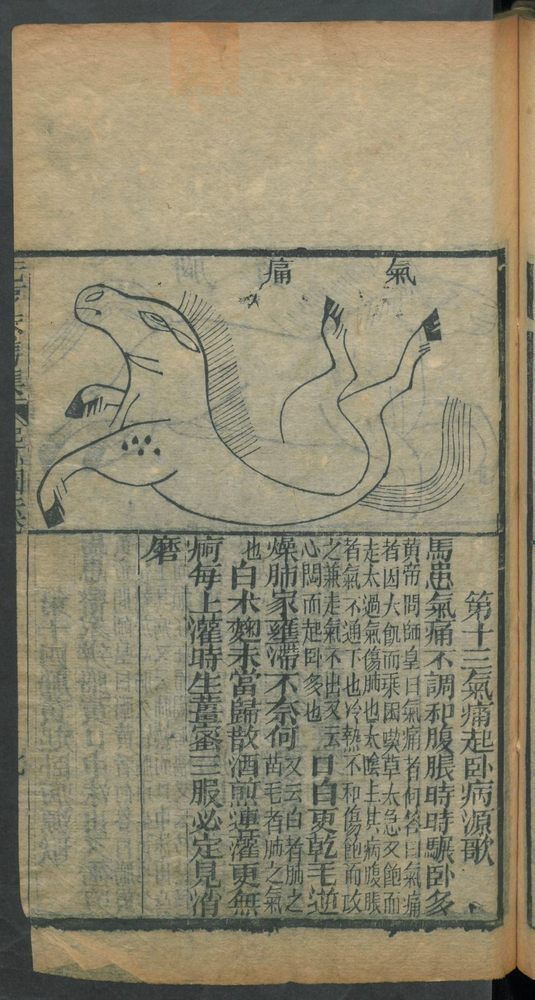 氣痛
第十三氣痛起卧病源歌
馬患氣痛不調和腹脹時時驟卧多
黃帝問師皇曰氣痛者何答曰氣痛
者因大飢而乗困喫草太急又飽而
走太過氣傷肺也太陰上其病腹脹
者氣不通下也冷熱不和傷飽而政
之兼走氣不出又云
心悶而起卧多也
口白更乾毛逆
燥肺家壅滯不奈何
又云白者肺之
苗毛者肺之氣
也
白术麴末當歸散酒煎連灌更無
疴每上灌時生薑蜜三服必定見消
磨